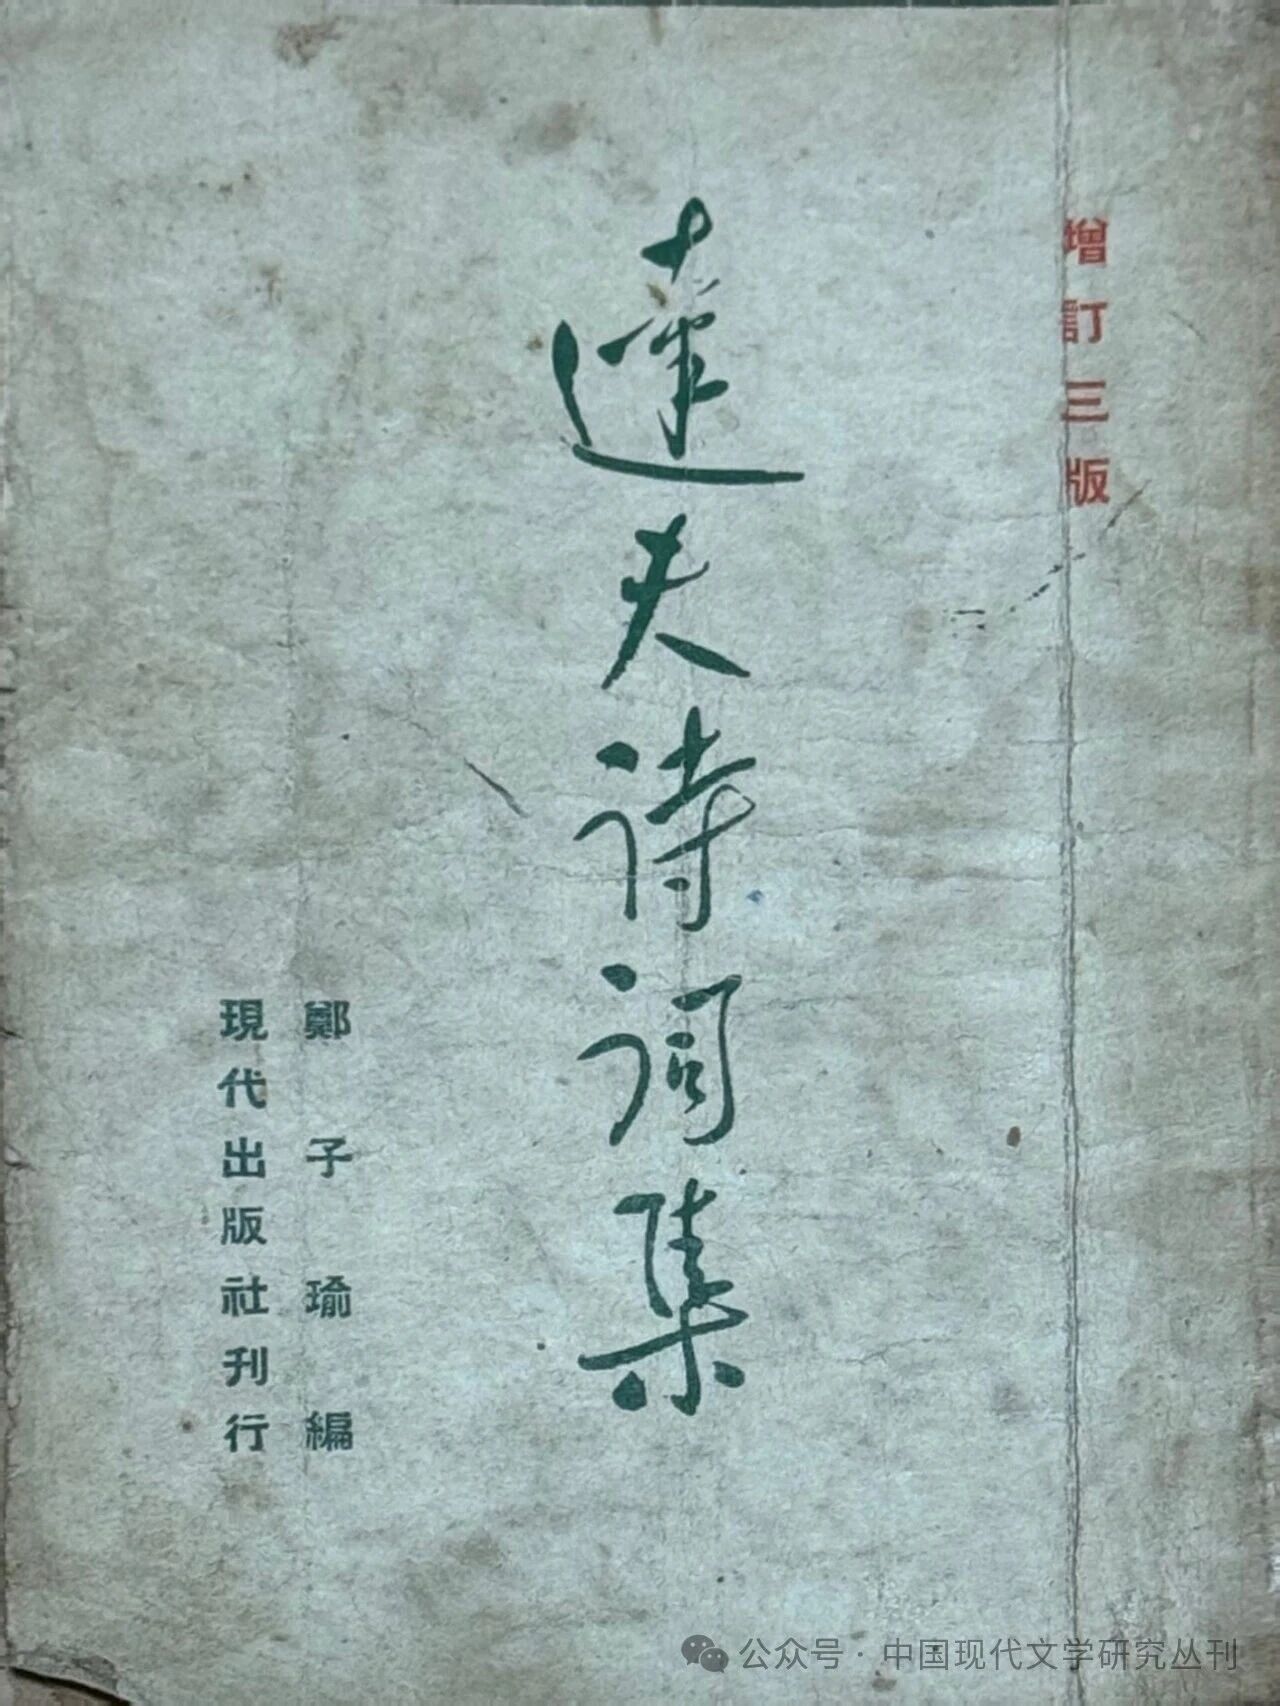 增訂三版
達夫诗词集
鄭子瑜編
現代出版社刊行
公众号·中国现代文学研究丛刊